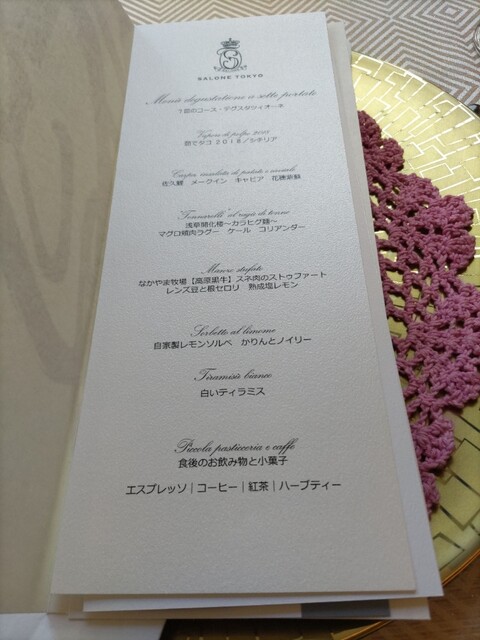 SALONE TOKYO
Menù degustazione a sette portate
7皿のコース・デグスタツィオーネ
Vapore di polpo 2018
茹でタコ2018／シチリア
Carpa insalata di patate e
佐久鯉 メークイン キャビア 花穂紫蘇
"Tonnarelli" al ragù di tonno
浅草開化楼～カラヒグ麺～
マグロ頬肉ラグー ケール コリアンダー
Manzo stufato
なかやま牧場【高原黒牛】スネ肉のストゥファート
レンズ豆と根セロリ 熟成塩レモン
Sorbetto al limone
自家製レモンソルベ かりんとノイリー
Tiramisù bianco
白いティラミス
Piccola pasticceria e caffè
食後のお飲み物と小菓子
エスプレッソ｜コーヒー｜紅茶｜ハーブティー